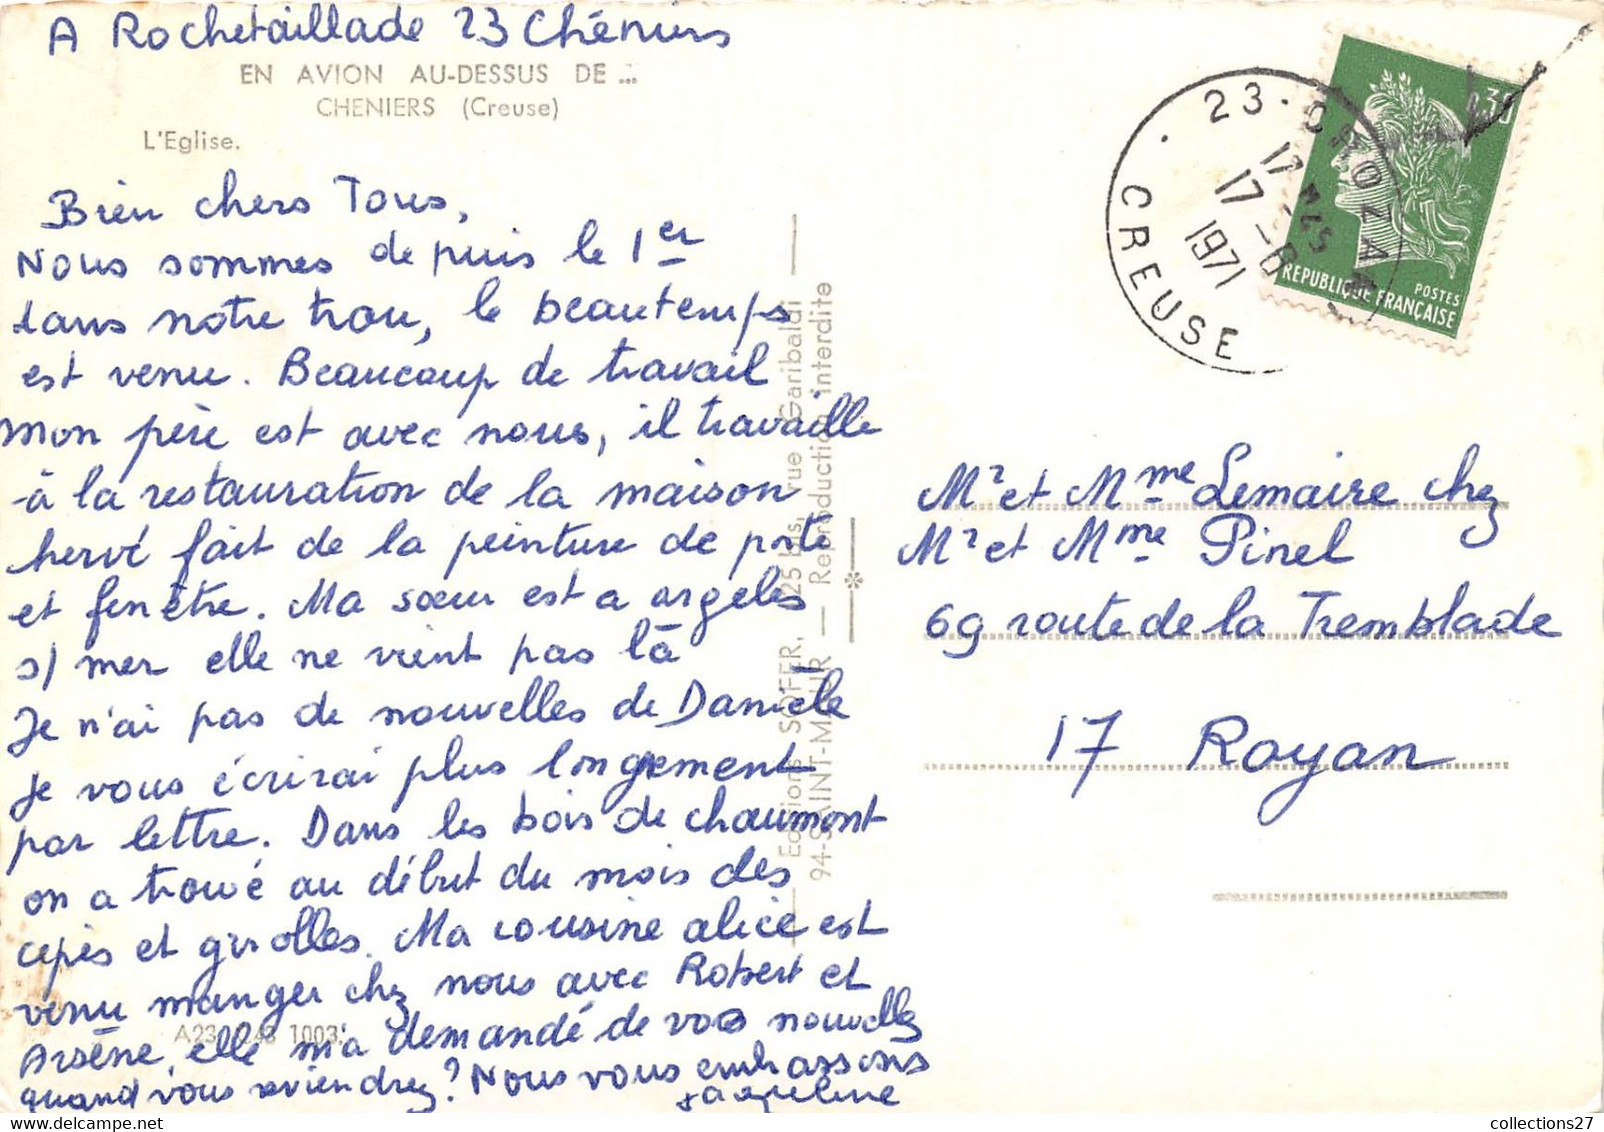 A Rochetaillade 23 Chéniers
EN AVION AU-DESSUS DE ...
CHENIERS (Creuse)
L'Eglise.
Bien chers Tous,
Nous sommes depuis le 1er
dans notre trou, le beau temps
est venu. Beaucoup de travail
mon père est avec nous, il travaille
à la restauration de la maison
hervé fait de la peinture de porte
et fenêtre. Ma sœur est a argeles
s/ mer elle ne vient pas là
Je n'ai pas de nouvelles de Daniele
Je vous écrirai plus longement
par lettre. Dans les bois de chaumont
on a trouvé au début du mois des
cèpes et girolles. Ma cousine alice est
venu manger chez nous avec Robert et
Arsène, elle m'a demandé de vos nouvelles
quand vous reviendrez? Nous vous embrassons
Jacqueline
A23 1003
Editions SOFER, 25 bis, rue Garibaldi
94-SAINT-MAUR — Reproduction interdite
23 - CROZANT
17 H 45
17 - 6
1971
CREUSE
0,30
POSTES
REPUBLIQUE FRANÇAISE
Mr et Mme Lemaire chez
Mr et Mme Pinel
69 route de la Tremblade
17 Royan
collections27